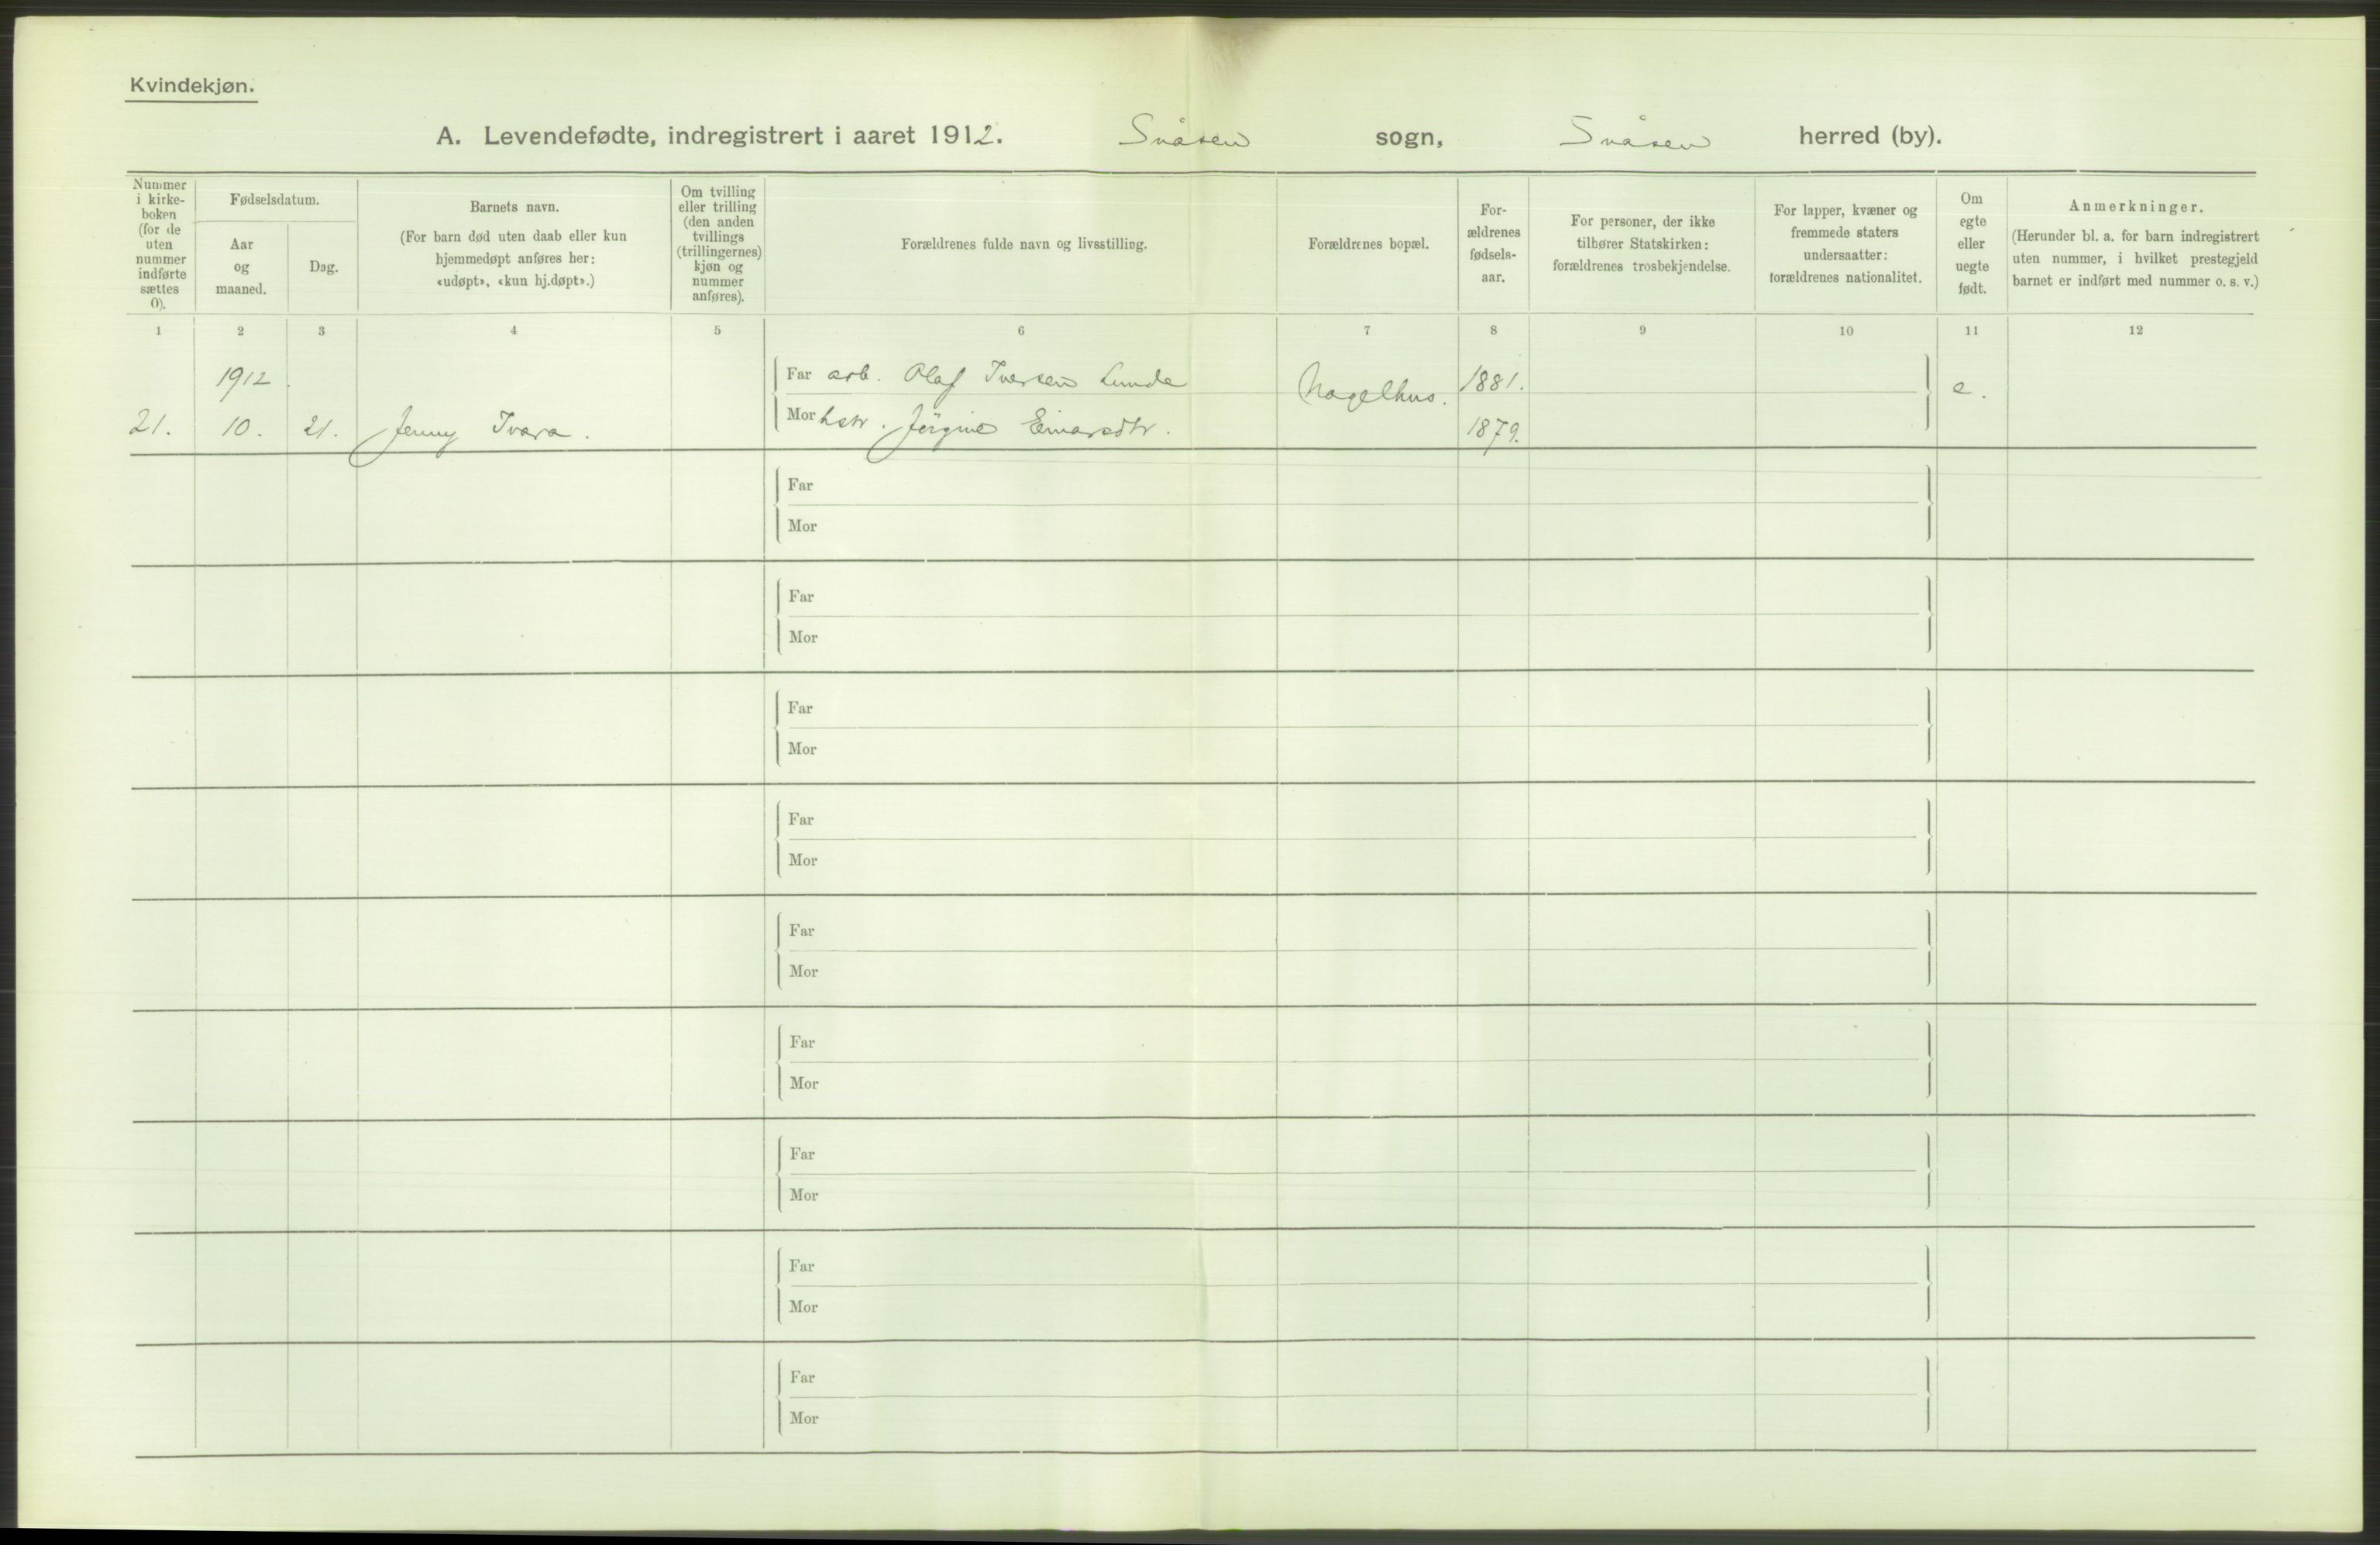 Kvindekjøn.
A. Levendefødte, indregistrert i aaret 1912. Snåsen sogn, Snåsen herred (by).
Nummer i kirke-boken (for de uten nummer indførte sættes 0).
Fødselsdatum.
Aar og maaned.
Dag.
Barnets navn.
(For barn død uten daab eller kun hjemmedøpt anføres her: «udøpt», «kun hj.døpt».)
Om tvilling eller trilling (den anden tvillings (trillingernes) kjøn og nummer anføres).
Forældrenes fulde navn og livsstilling.
Forældrenes bopæl.
For-ældrenes fødsels-aar.
For personer, der ikke tilhører Statskirken: forældrenes trosbekjendelse.
For lapper, kvæner og fremmede staters undersaatter: forældrenes nationalitet.
Om egte eller uegte født.
Anmerkninger.
(Herunder bl. a. for barn indregistrert uten nummer, i hvilket prestegjeld barnet er indført med nummer o. s. v.)
1 2 3 4 5 6 7 8 9 10 11 12
1912 Far arb. Olaf Iversen Lunde Nagelhus. 1881. e.
21. 10. 21. Jenny Ivara. Mor hstr. Jörgine Einarsdtr. 1879.
Far
Mor
Far
Mor
Far
Mor
Far
Mor
Far
Mor
Far
Mor
Far
Mor
Far
Mor
Far
Mor